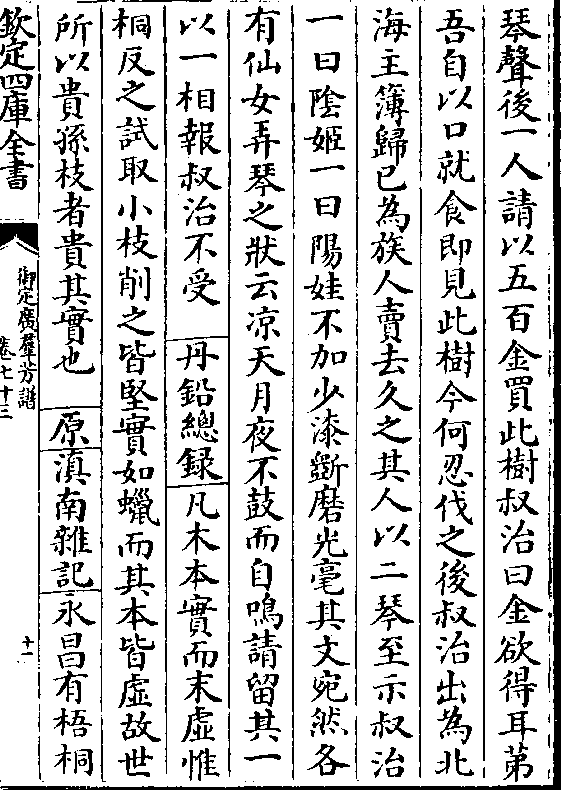 琴聲後一人請以五百金買此樹叔治曰金欲得耳第
吾自以口就食即見此樹今何忍伐之後叔治出為北
海主簿歸已為族人賣去久之其人以二琴至示叔治
一曰陰姬一曰陽娃不加少漆斵磨光毫其文宛然各
有仙女弄琴之狀云凉天月夜不鼓而自鳴請留其一
以一相報叔治不受 丹鉛總録 凡木本實而末虛惟
桐反之試取小枝削之皆堅實如蠟而其本皆虛故世
所以貴孫枝者貴其實也 原 滇南雜記 永昌有梧桐
欽定四庫全書
御定廣羣芳譜
卷七十三
十一